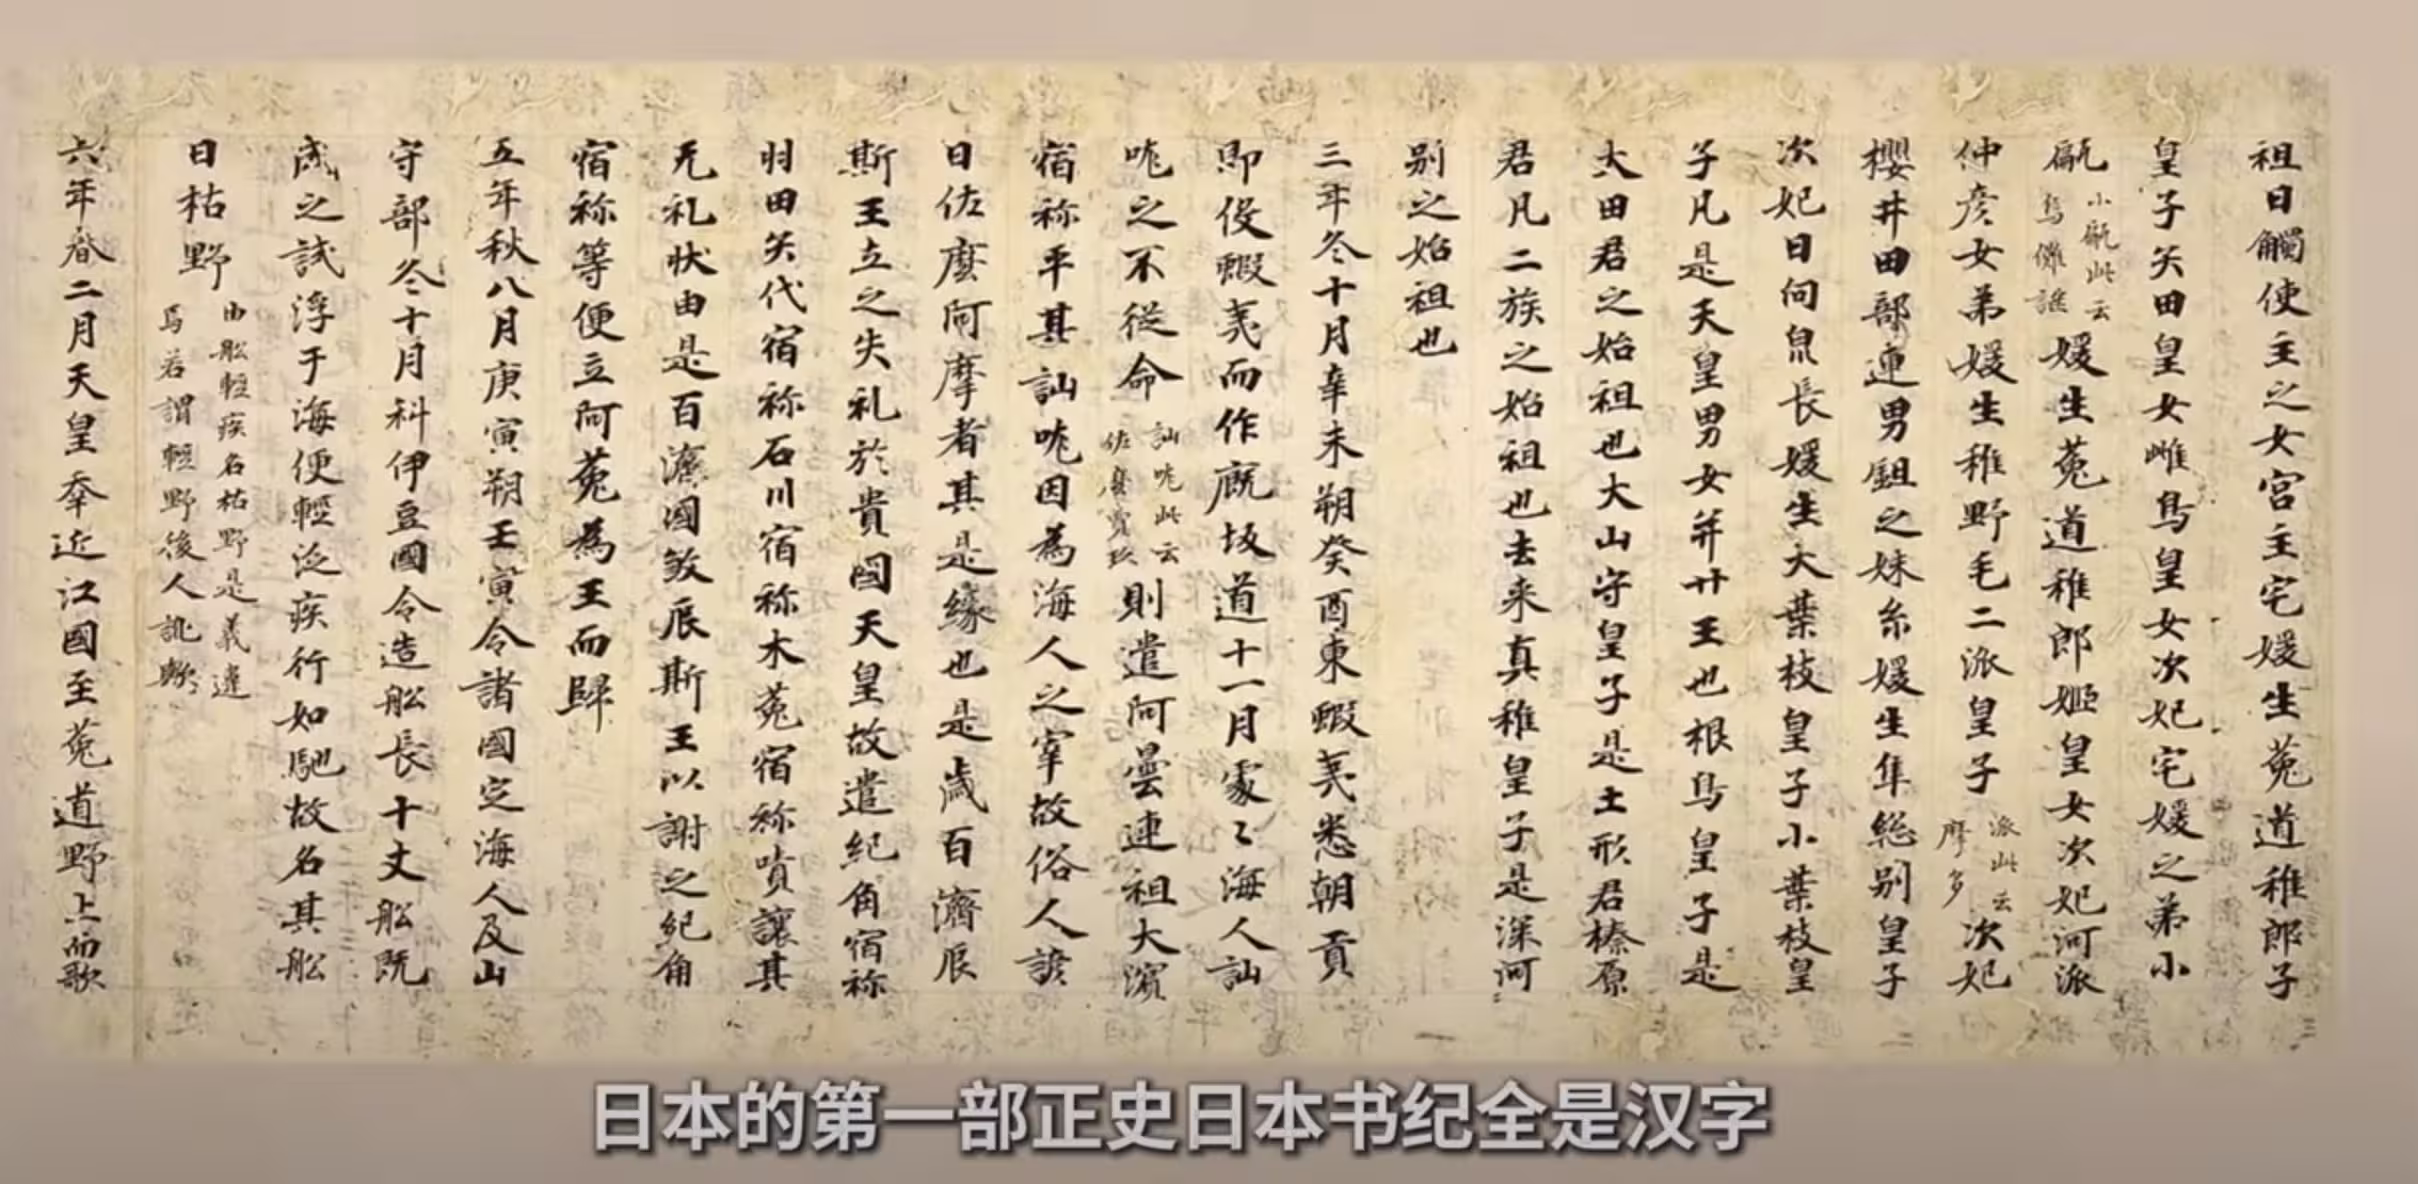 祖日觸使主之女宮主宅媛生菟道稚郎子
皇子矢田皇女雌鳥皇女次妃宅媛之弟小
甂小甂此云烏儺謎媛生菟道稚郎姬皇女次妃河派
仲彦女弟媛生稚野毛二派皇子派此云摩多次妃
櫻井田部連男鉏之妹糸媛生隼総别皇子
次妃日向泉長媛生大葉枝皇子小葉枝皇
子凡是天皇男女并廿王也根鳥皇子是
大田君之始祖也大山守皇子是土形君榛原
君凡二族之始祖也去来真稚皇子是深河
别之始祖也
三年冬十月辛未朔癸酉東蝦夷悉朝貢
即伇蝦夷而作厩坂道十一月處〻海人訕
哤之不從命訕哤此云佐麼賣玖則遣阿曇連祖大濵
宿祢平其訕哤因為海人之宰故俗人諺
日佐麼阿摩者其是緣也是歲百濟辰
斯王立之失礼於貴國天皇故遣紀角宿祢
羽田矢代宿祢石川宿祢木菟宿祢嘖讓其
无礼状由是百濟國敓辰斯王以謝之紀角
宿祢等便立阿菟為王而歸
五年秋八月庚寅朔壬寅令諸國定海人及山
守部冬十月科伊豆國令造舩長十丈舩既
成之試浮于海便輕泛疾行如馳故名其舩
日枯野由舩輕疾名枯野是義違焉若謂輕野後人訛歟
六年春二月天皇奉近江國至菟道野上而歌
日本的第一部正史日本书纪全是汉字